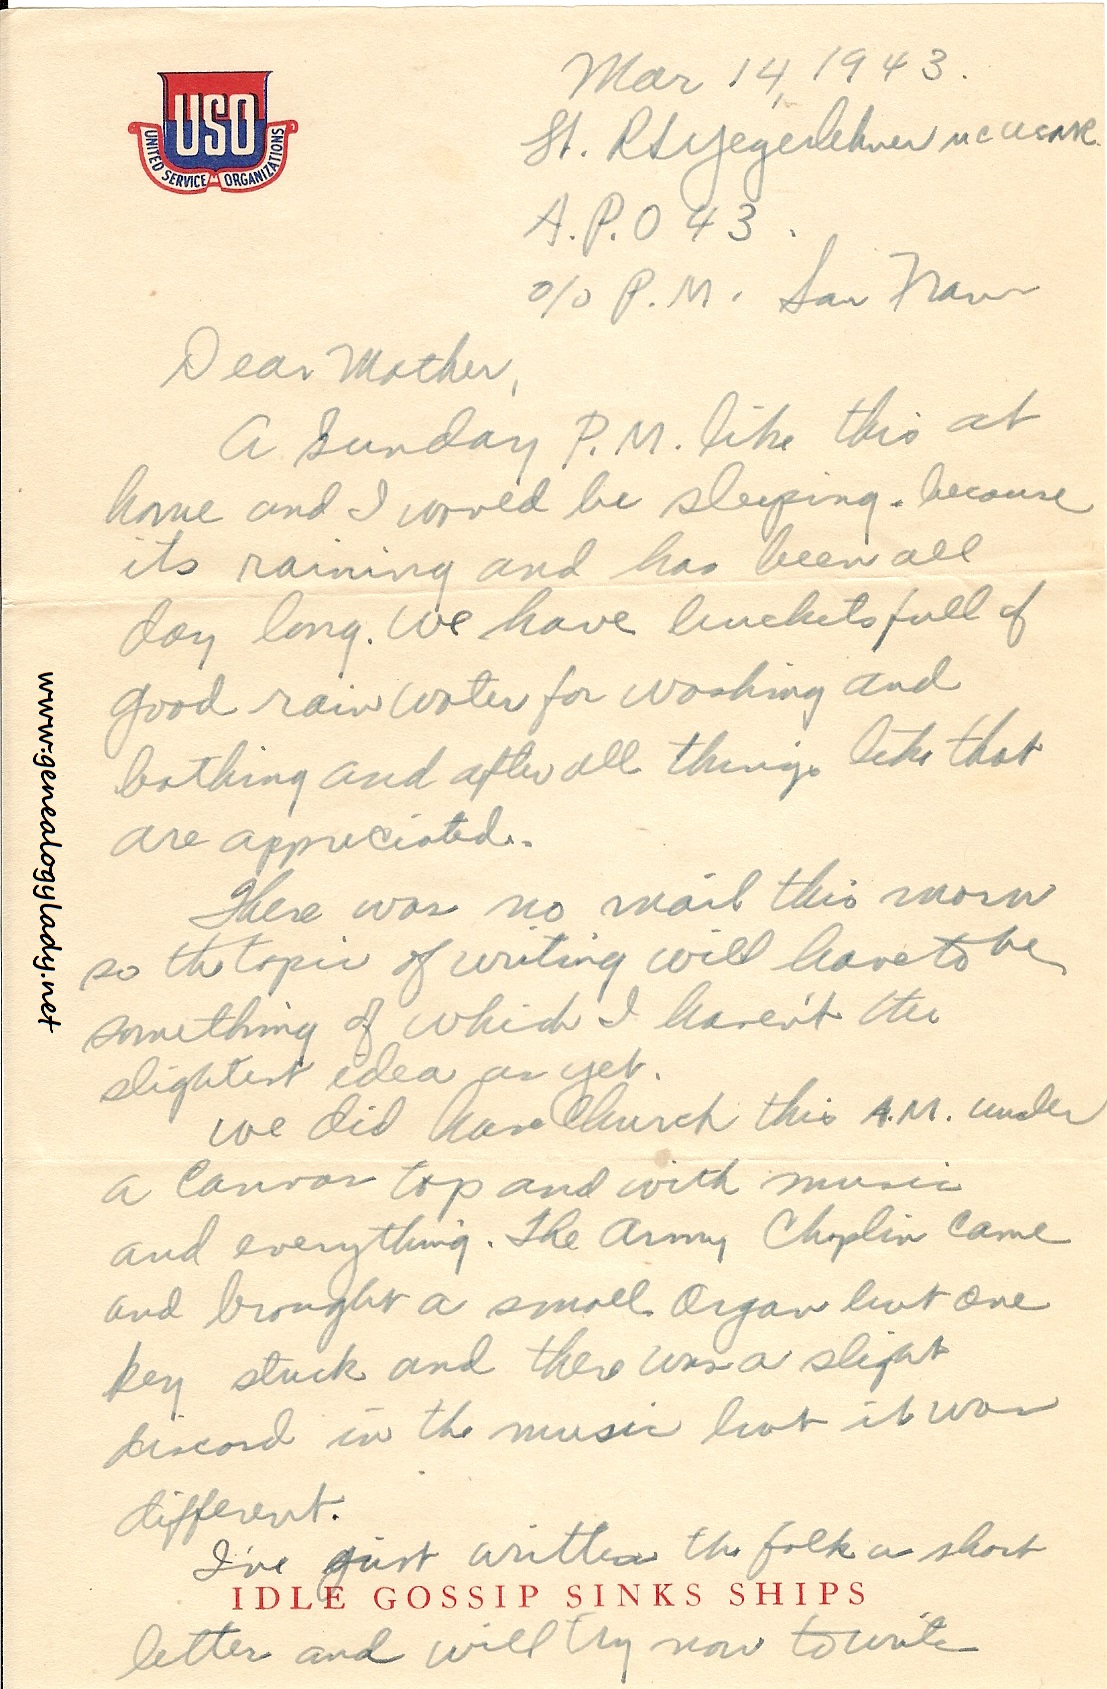 USO
UNITED SERVICE ORGANIZATIONS
Mar 14, 1943.
Lt. R S Yegerlehner MC USNR.
A.P.O 43.
c/o P.M. San Fran
Dear Mother,
A Sunday P.M. like this at
home and I would be sleeping. because
its raining and has been all
day long. We have buckets full of
good rain water for washing and
bathing and after all things like that
are appreciated.
There was no mail this morn
so the topic of writing will have to be
something of which I haven't the
slightest idea as yet.
We did have Church this A.M. under
a Canvas top and with music
and everything. The Army Chaplin came
and brought a small Organ but one
key stuck and there was a slight
discord in the music but it was
different.
I've just written the folk a short
IDLE GOSSIP SINKS SHIPS
letter and will try now to write
www.genealogylady.net